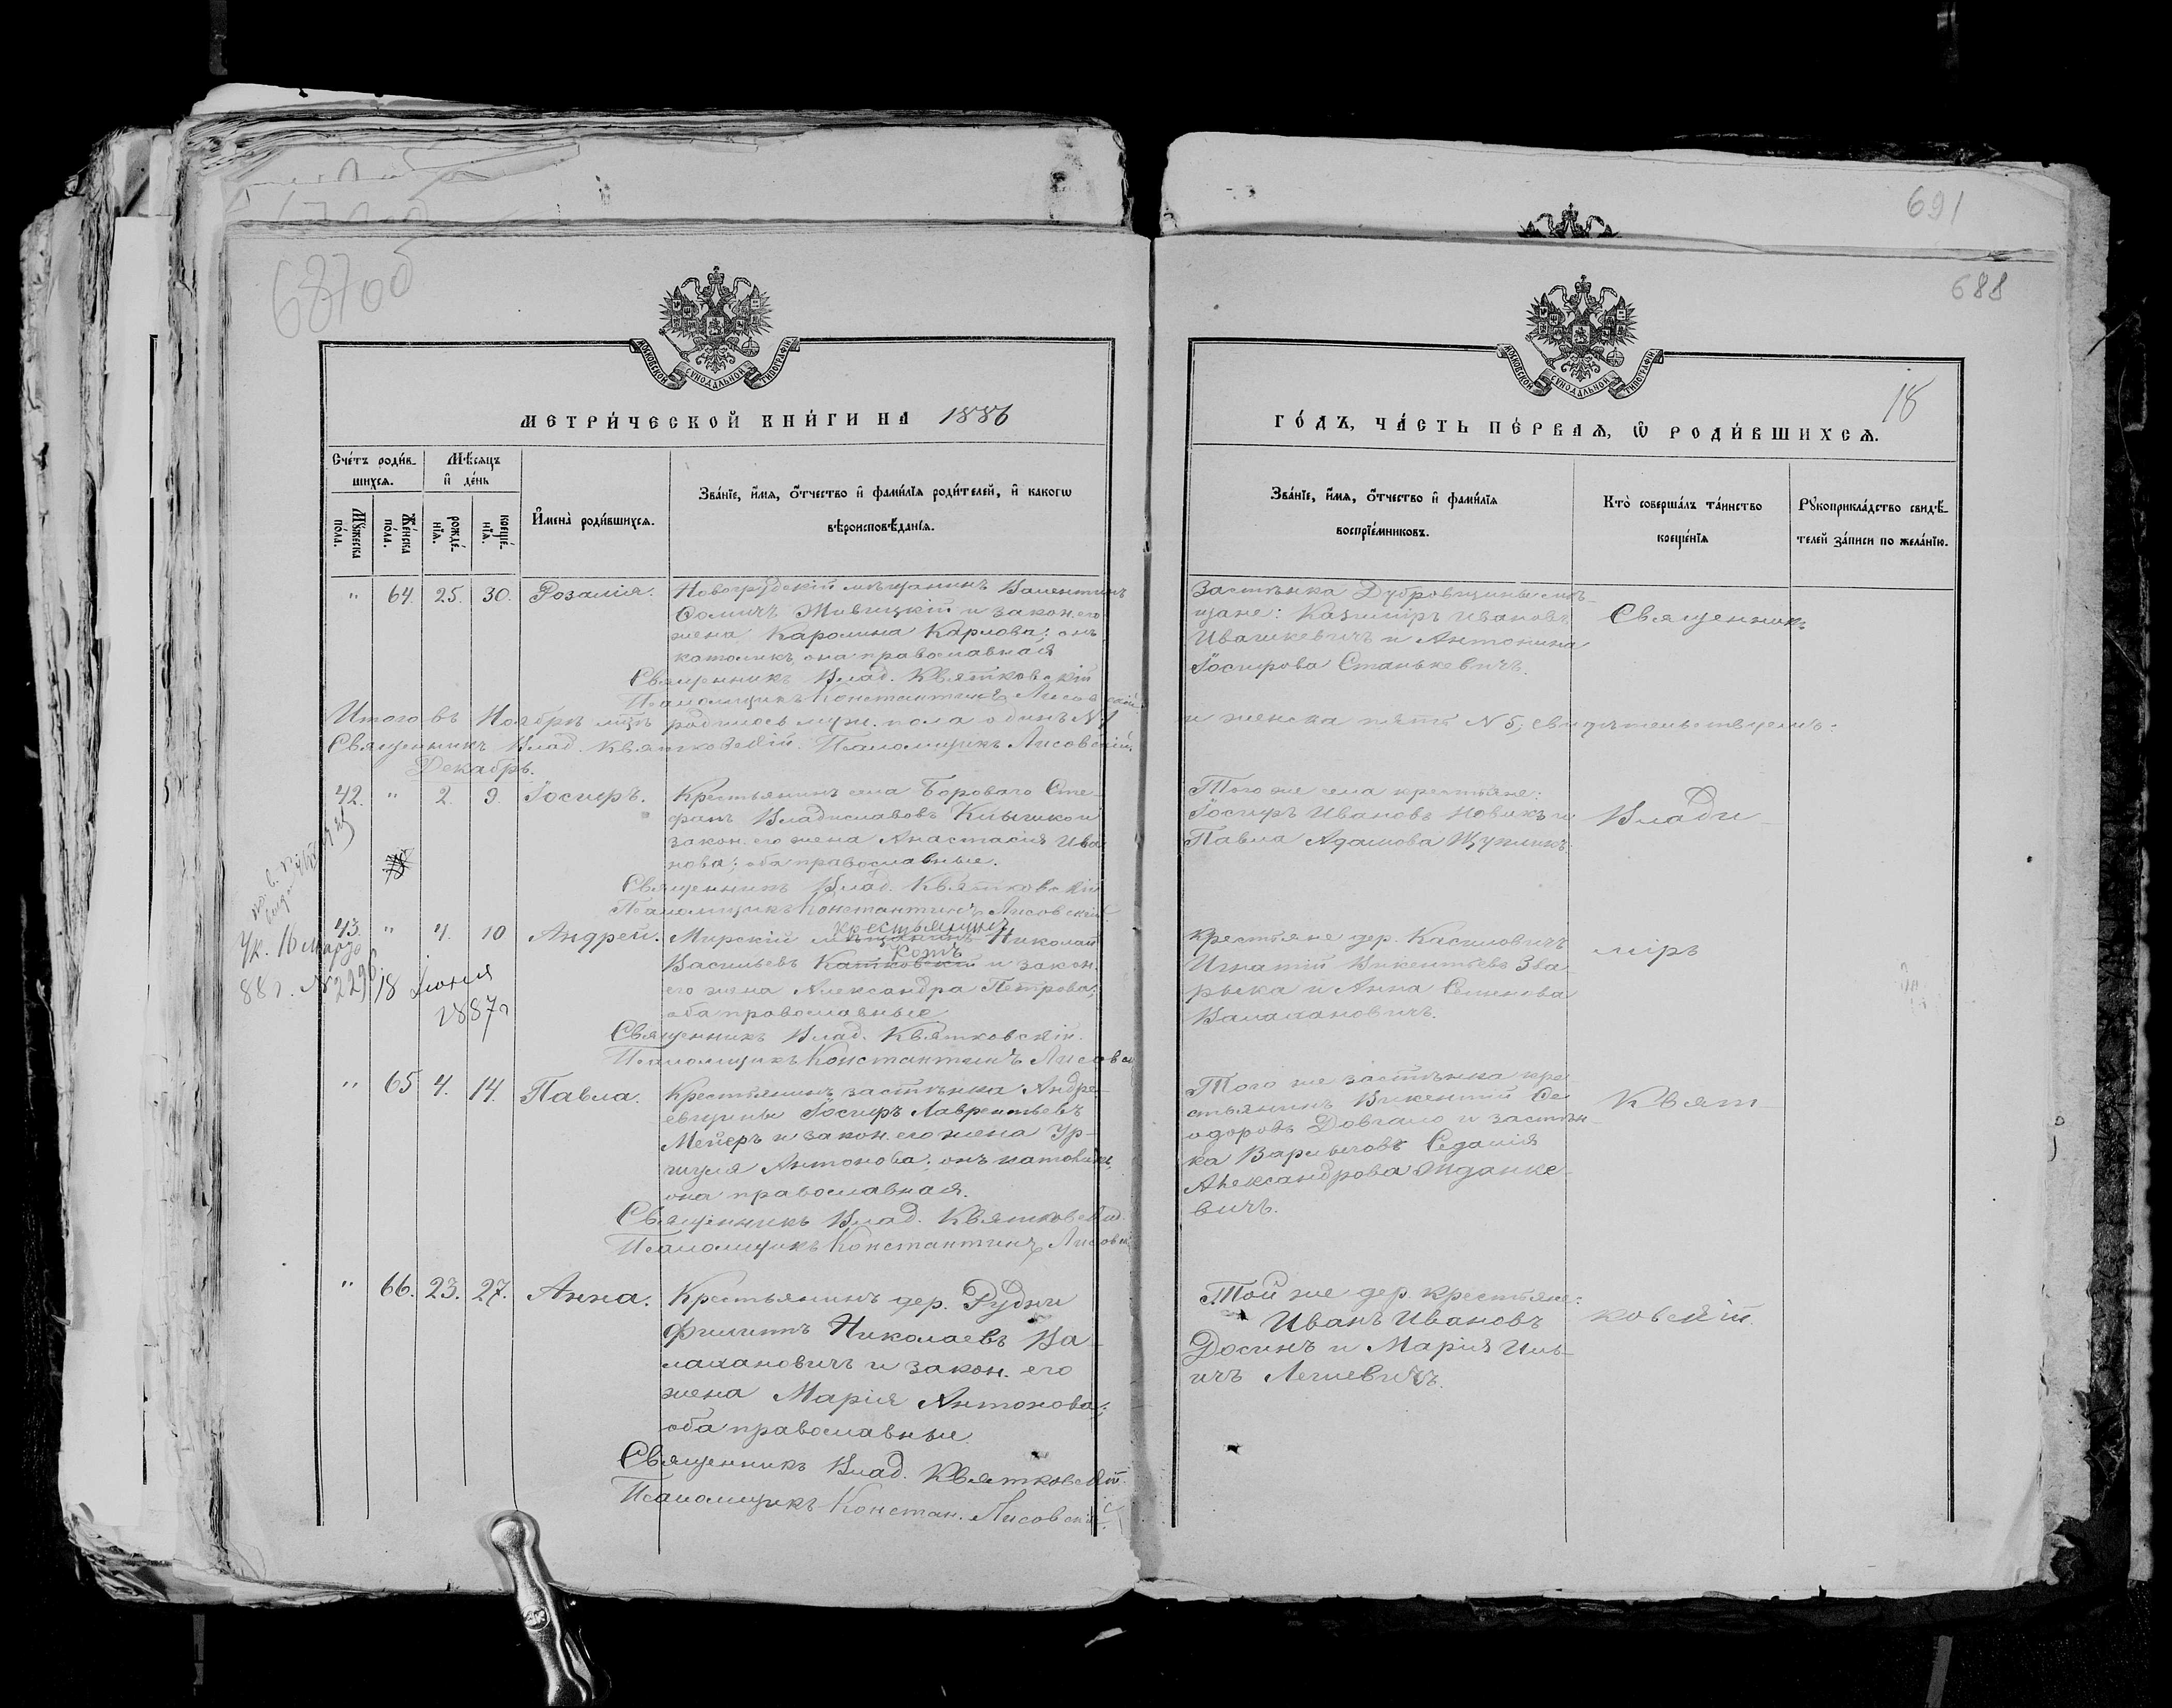 691
687об
688
МОСКОВСКОЙ СУНОДАЛЬНОЙ ТИПОГРАФІИ
МОСКОВСКОЙ СУНОДАЛЬНОЙ ТИПОГРАФІИ
18
МЕТРИ́ЧЕСКОЙ КНИ́ГИ НА 1886
ГО́ДЪ, ЧА́СТЬ ПЕ́РВАѦ, Ѡ҆ РОДИ́ВШИХСѦ.
Сче́тъ роди́в-
шихсѧ.
Мѣ́сѧцъ
и҆ де́нь
Мꙋ́жеска
по́ла.
Же́нска
по́ла.
рожде́-
нїѧ.
креще́-
нїѧ.
И҆мена̀ роди́вшихсѧ.
Зва́нїе, и҆́мѧ, ѻ҆́тчество и҆ фамѝлїѧ роди́телей, и҆ како́гѡ
вѣроисповѣ́данїѧ.
Зва́нїе, и҆́мѧ, ѻ҆́тчество и҆ фами́лїѧ
воспрїе́мниковъ.
Кто̀ соверша́лъ та́инство
креще́нїѧ
Рꙋкоприкла́дство свидѣ́-
телей за́писи по жела́нїю.
" 64. 25. 30. Розалія. Новогрудскій мѣщанинъ Валентинъ
Жавицкій и закон. его
жена Каролина Карлова; онъ
католикъ, она православная
Священникъ Влад. Квятковскій
Псаломщикъ Константинъ Лисовскій
Застѣнка Дубровщины мѣ-
щане: Казиміръ Ивановъ
Ивашкевичъ и Антонина
Іосифова Станькевичъ.
Священникъ
Итого въ Ноябрѣ мцѣ родилось муж. пола одинъ №1 и женска пять №5, свидѣтельствуемъ:
Священникъ Влад. Квятковскій. Псаломщикъ Лисовскій.
Декабрь.
42. " 2. 9. Іосифъ. Крестьянинъ села Борового Сте-
фанъ Владиславовъ и
закон. его жена Анастасія Ива-
нова; оба православные.
Священникъ Влад. Квятковскій
Псаломщикъ Константинъ Лисовскій
Того же села крестьяне:
Іосифъ Ивановъ Новикъ и
Павла Адамова
Влади-
43. " 4. 10 Андрей. Мирскій мѣщанинъ крестьянинъ Николай
Васильевъ Катковскій Котъ и закон.
его жена Александра Петрова;
оба православные
Священникъ Влад. Квятковскій.
Псаломщикъ Константинъ Лисовск
Ук. 16 марта
88 г. №2296.
18 Іюня
1887 г
Крестьяне дер. Касиловичъ
Игнатій Викентьевъ Зва-
рыка и Анна Семенова
Валахановичъ.
міръ
" 65 4. 14. Павла. Крестьянинъ застѣнка Андре-
евщины Іосифъ Лаврентьевъ
Мейеръ и закон. его жена Ур-
шуля Антонова; онъ католикъ,
она православная.
Священникъ Влад. Квятковскій.
Псаломщикъ Константинъ Лисовскі
Того же застѣнка кре-
стьянинъ Викентій Ѳе-
одоровъ Довгало и застѣн-
ка
Александрова Жданке-
вичъ.
Квят-
" 66. 23. 27. Анна. Крестьянинъ дер. Рудни
Филиппъ Николаевъ Ва-
лахановичъ и закон. его
жена Марія Антонова;
оба православные
Священникъ Влад. Квятковскій.
Псаломщикъ Констан. Лисовскій.
Той же дер. крестьяне:
Иванъ Ивановъ
Досинъ и Марія Иль-
ичъ
ковскій.